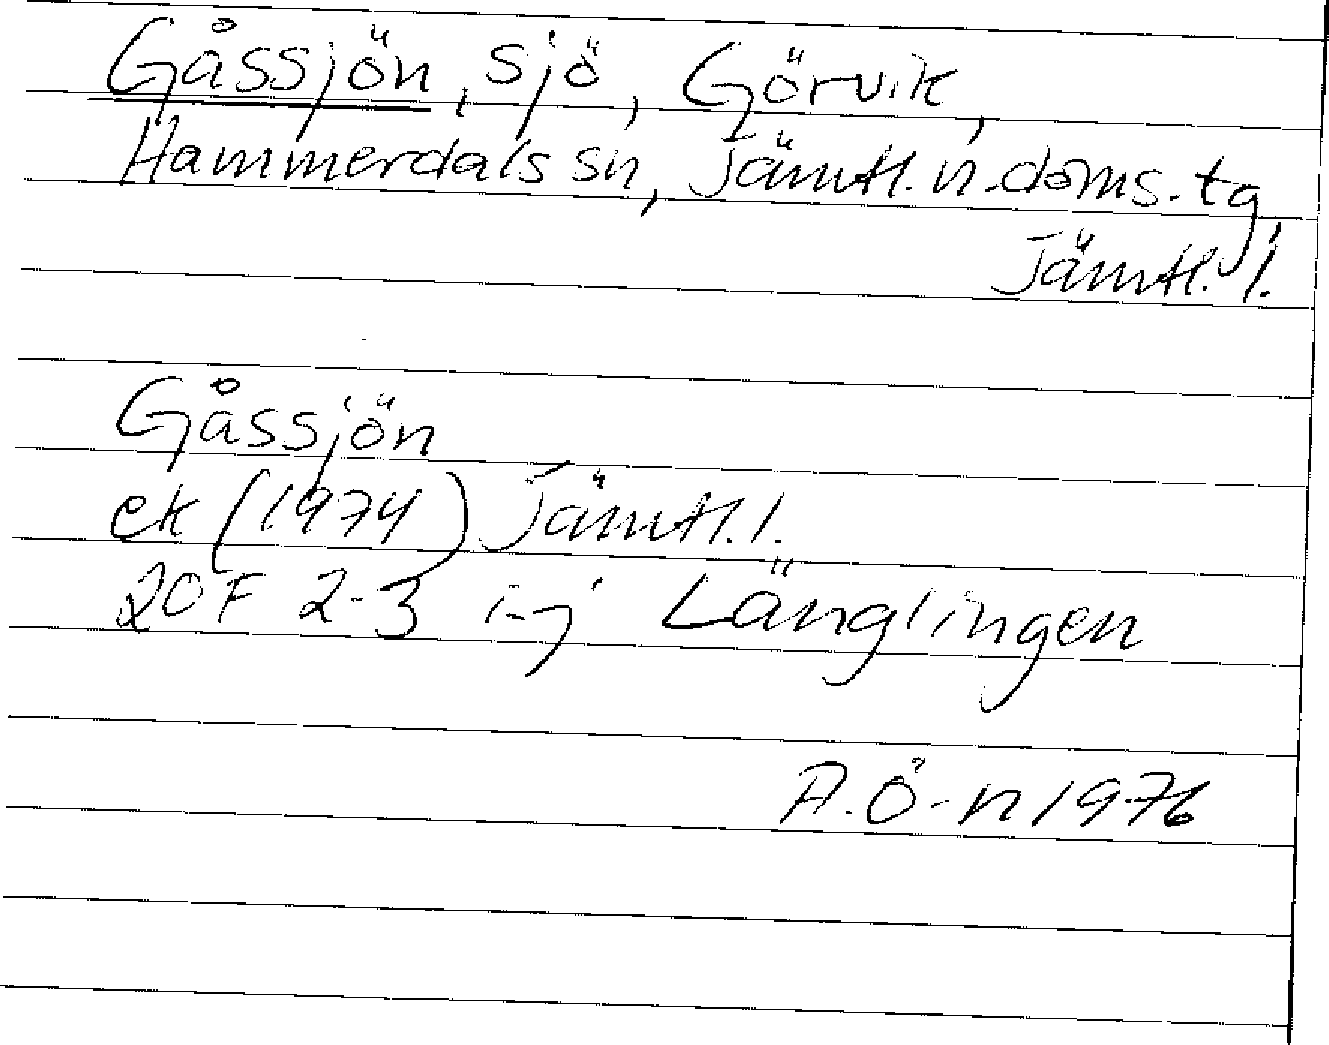 Gåssjön, sjö, Görvik,
Hammerdals sn, Jämtl. n. doms. tg
Jämtl. l.
Gåssjön
ek (1974) Jämtl. l.
20 F 2-3 i-j Länglingen
A. Ö-n 1976